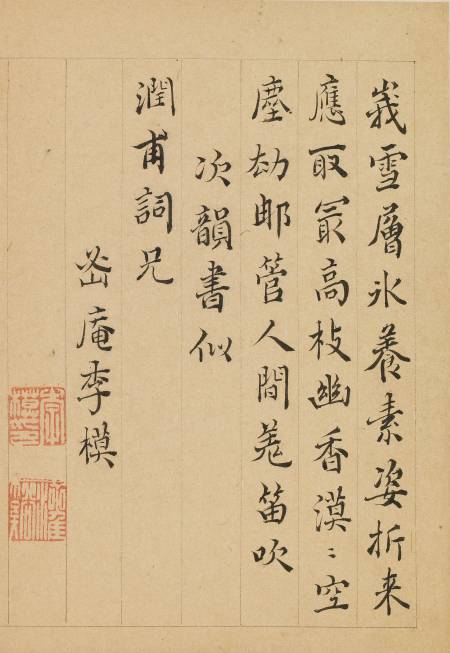 峩雪層氷養素姿折来
應取冣高枝幽香漠〻空
塵劫郍管人間羗笛吹
次韻書似
潤甫詞兄
密庵李模